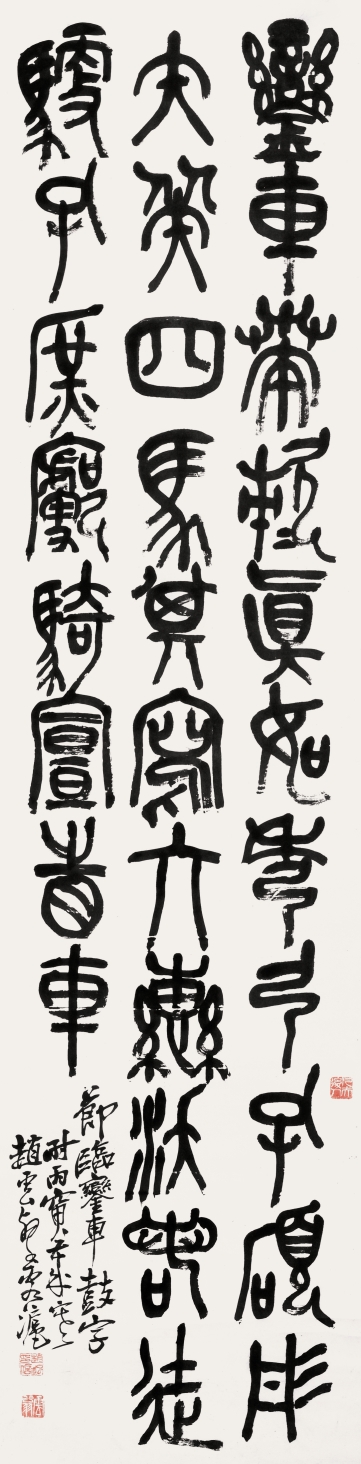 鑾車𠦪敕真如秀弓孔碩彤
矢四馬其寫六轡沃若徒
馭孔庶廓騎宣眚車
節臨鑾車鼓字
時丙寅年
趙雲壑滬